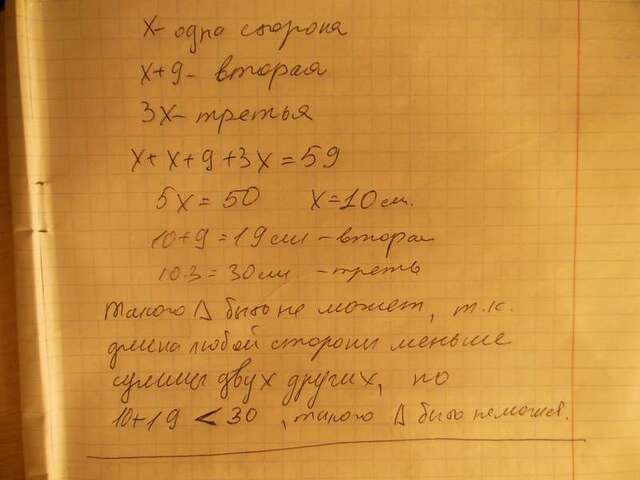 x- одна сторона
x+9- вторая
3x- третья
x+x+9+3x=59
5x=50 x=10см.
10+9=19см -вторая
10·3=30см -треть
такого Δ быть не может, т.к.
длина любой стороны меньше
суммы двух других, но
10+19 < 30, такого Δ быть не может.